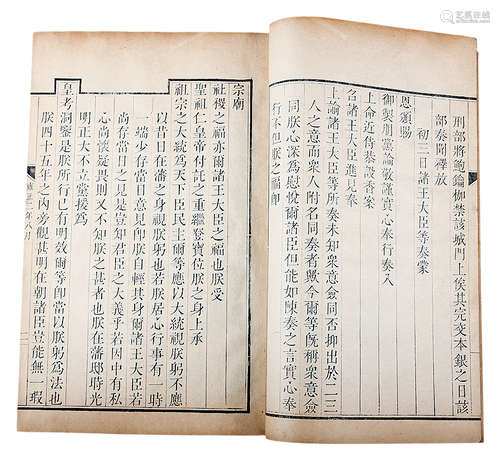 刑部將鮑鑑枷禁該城門上俟其完交本銀之日該
部奏聞釋放
初三日諸王大臣等奏蒙
恩頒賜
御製朋黨論敬謹實心奉行奏入
上命近侍恭設香案
召諸王大臣進見奏
上諭諸王大臣等所奏未知衆意僉同否抑出於二三
人之意而衆人附名同奏者歟今爾等旣稱衆意僉
同朕心深爲慰悅爾諸臣但能如陳奏之言實心奉
行不但朕之福卽
宗廟
社稷之福亦爾諸王大臣之福也朕受
聖祖仁皇帝付託之重繼登寶位朕之身上承
祖宗之大統爲天下臣民主爾等應以大統視朕躬不應
以昔日在藩之身視朕躬也若朕居心行事有一時
一端少存當日意見卽朕自輕其身爾諸王大臣若
尚存當日之見是豈知君臣之大義乎若因中有私
心尚懷疑畏則又不知朕之甚者也朕在藩邸時光
明正大不立黨援爲
皇考洞鑒是朕所行已有明效爾等卽當以朕躬爲法也
朕四十五年之內旁觀甚明在朝諸臣豈能無一瑕
雍正二年八月
艺狐在线